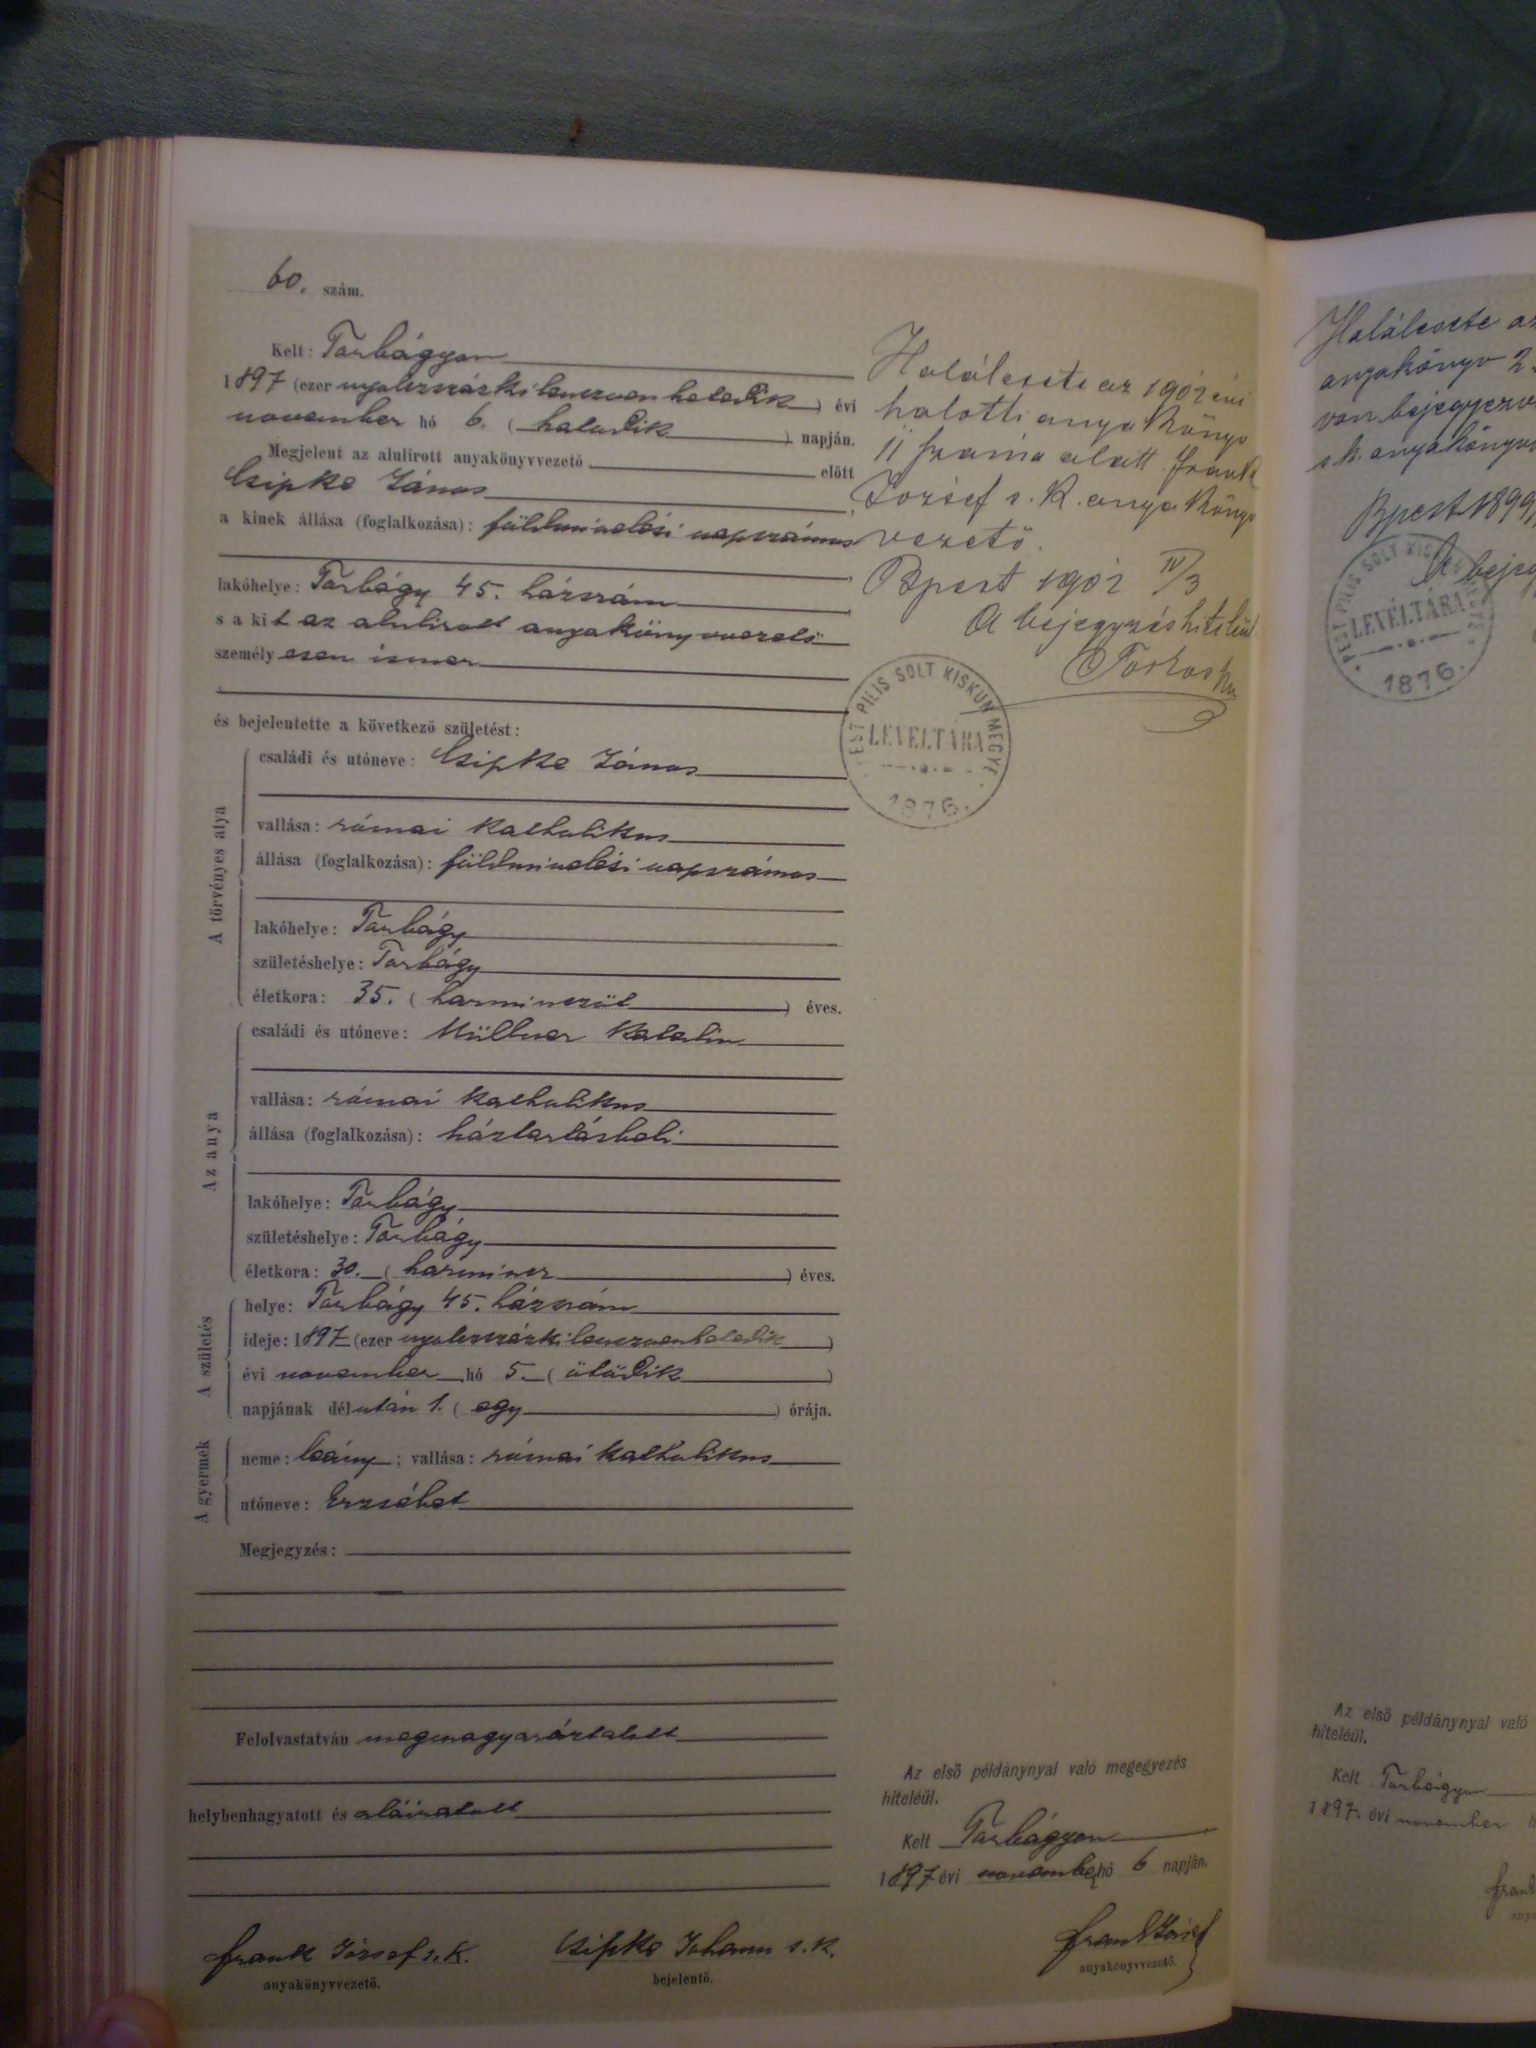 60. szám.
Kelt: Torbágyon
1897 (ezer nyolczszázkilenczvenhetedik) évi
november hó 6. (hatodik) napján.
Megjelent az alulirott anyakönyvvezető előtt
Csipke János
a kinek állása (foglalkozása): földmivelési napszámos
lakóhelye: Torbágy 45. házszám
s a kit az alulirott anyakönyvvezető
személyesen ismer
és bejelentette a következő születést:
A törvényes atya
családi és utóneve: Csipke János
vallása: római katholikus
állása (foglalkozása): földmivelési napszámos
lakóhelye: Torbágy
születéshelye: Torbágy
életkora: 35. (harminczöt) éves.
Az anya
családi és utóneve: Müllner Katalin
vallása: római katholikus
állása (foglalkozása): háztartásbeli
lakóhelye: Torbágy
születéshelye: Torbágy
életkora: 30. (harmincz) éves.
A születés
helye: Torbágy 45. házszám
ideje: 1897 (ezer nyolczszázkilenczvenhetedik)
évi november hó 5. (ötödik)
napjának délután 1. (egy) órája.
A gyermek
neme: leány; vallása: római katholikus
utóneve: Erzsébet
Megjegyzés:
Felolvastatván megmagyaráztatott
helybenhagyatott és aláiratott
Frank József s. k.
anyakönyvvezető.
Csipke Johann s. k.
bejelentő.
Halálesete az 1902 évi
halotti anyakönyv
11 száma alatt. Frank
József s. k. anyakönyv
vezető.
Bpest 1902 IV/3
A bejegyzés hiteléül
PEST PILIS SOLT KISKUN MEGYE
LEVÉLTÁRA
1876.
Az első példánynyal való megegyezés
hiteléül.
Kelt Torbágyon
1897 évi november hó 6 napján.
Frank József
anyakönyvvezető.
Halálesete az
anyakönyv 2
van bejegyezve
s. k. anyakönyv
Bpest 1899
A bejeg
PEST PILIS SOLT KIS
LEVÉLTÁRA
1876.
Az első példánynyal való
hiteléül.
Kelt Torbágyon
1897 évi november h
Frank